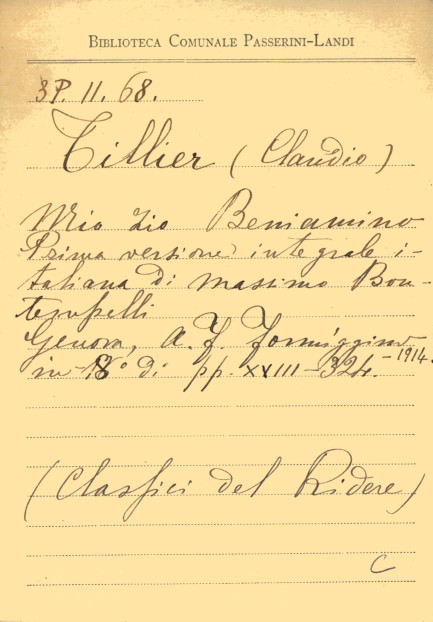 BIBLIOTECA COMUNALE PASSERINI-LANDI
3P. 11. 68.
Tillier (Claudio)
Mio zio Beniamino
Prima versione integrale i-
taliana di Massimo Bon-
tempelli
Genova, A. F. Formiggini - 1914.
in 8° di pp. XXIII-324.
(Classici del Ridere)
C